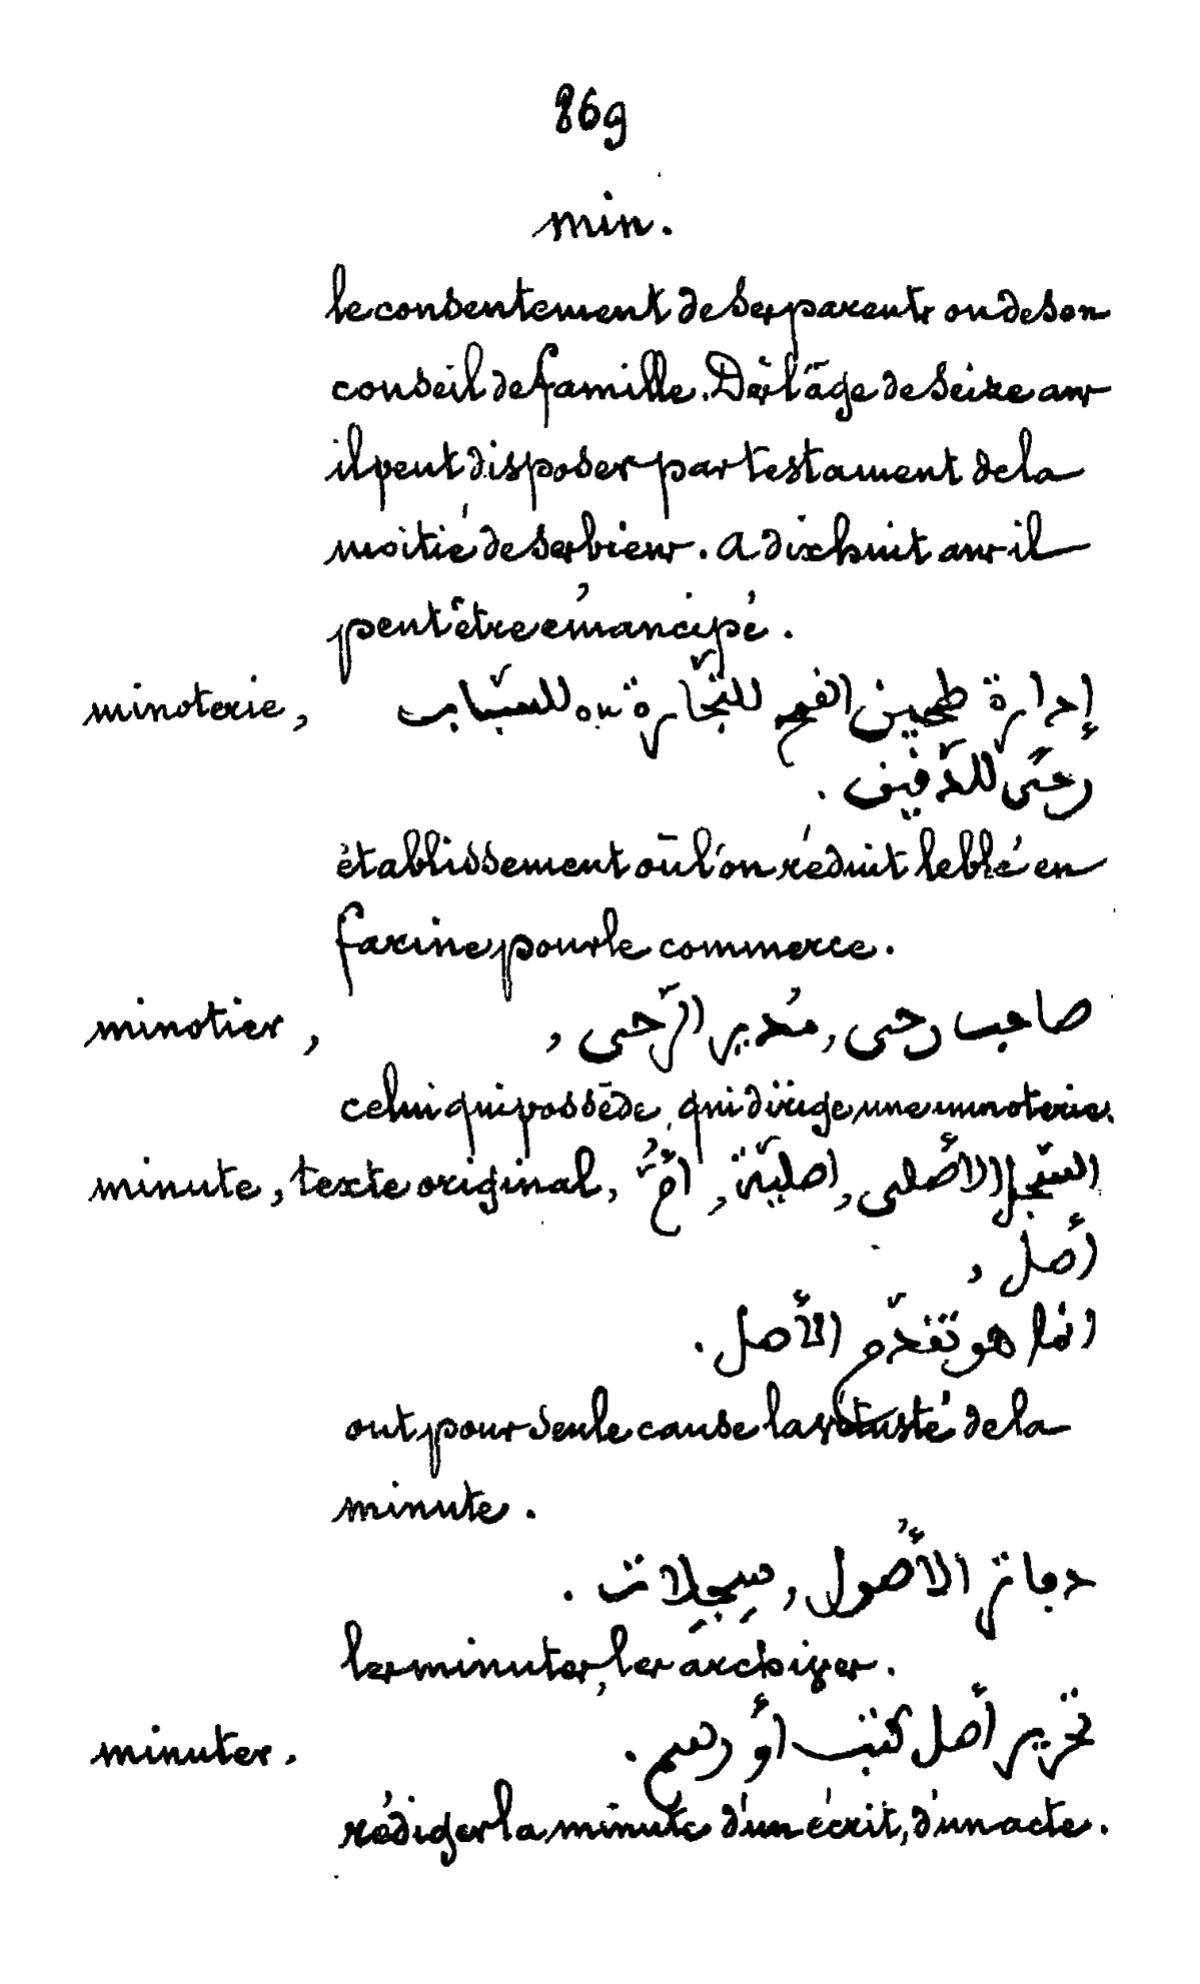 869
min.
le consentement de ses parents ou de son
conseil de famille. Dès l'âge de seize ans
il peut disposer par testament de la
moitié de ses biens. A dix huit ans il
peut être émancipé.
minoterie, إدارة طحين القمح للتّجارة
رحىً للدّقيق.
établissement où l'on réduit le blé en
farine pour le commerce.
minotier, صاحب رحى, مُدير الرّحى,
celui qui possède, qui dirige une minoterie.
minute, texte original, السّجل الأصلى, اصليّة, أمّ
أصل,
انما هو تقدّم الأصل.
ont pour seule cause la vétusté de la
minute.
دفاتر الأصُول, سِجِلات.
les minutes, les archives.
minuter. تحرير أصل كتب أو رسم.
rédiger la minute d'un écrit, d'un acte.